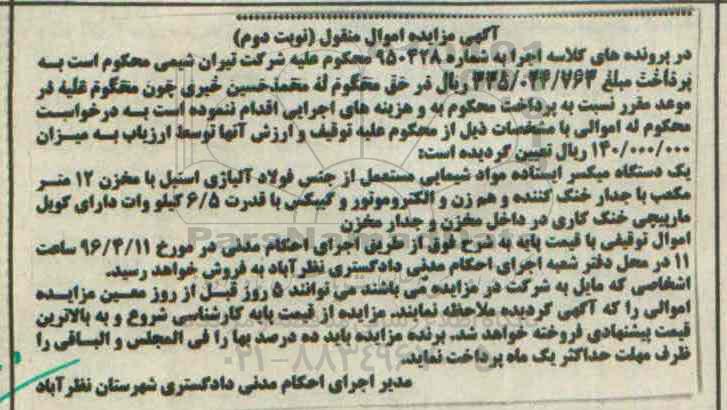 آگهی مزایده اموال منقول (نوبت دوم)
در پرونده های کلاسه اجرا به شماره ۹۵۰۳۲۸ محکوم علیه شرکت تیران شیمی محکوم است به
پرداخت مبلغ ۳۳۵/۰۴۴/۷۶۳ ریال در حق محکوم له محمدحسین خبری چون محکوم علیه در
موعد مقرر نسبت به پرداخت محکوم به و هزینه های اجرایی اقدام ننموده است به درخواست
محکوم له اموالی با مشخصات ذیل از محکوم علیه توقیف و ارزش آنها توسط ارزیاب به میزان
۱۴۰/۰۰۰/۰۰۰ ریال تعیین گردیده است:
یک دستگاه میکسر ایستاده مواد شیمایی مستعمل از جنس فولاد آلیاژی استیل با مخزن ۱۲ متر
مکعب با جدار خنک کننده و هم زن و الکتروموتور و گیبکس با قدرت ۶/۵ کیلو وات دارای کویل
مارپیچی خنک کاری در داخل مخزن و جدار مخزن
اموال توقیفی با قیمت پایه به شرح فوق از طریق اجرای احکام مدنی در مورخ ۹۶/۴/۱۱ ساعت
۱۱ در محل دفتر شعبه اجرای احکام مدنی دادگستری نظرآباد به فروش خواهد رسید.
اشخاصی که مایل به شرکت در مزایده می باشند می توانند ۵ روز قبل از روز معین مزایده
اموالی را که آگهی گردیده ملاحظه نمایند. مزایده از قیمت پایه کارشناسی شروع و به بالاترین
قیمت پیشنهادی فروخته خواهد شد. برنده مزایده باید ده درصد بها را فی المجلس و الباقی را
ظرف مهلت حداکثر یک ماه پرداخت نماید.
مدیر اجرای احکام مدنی دادگستری شهرستان نظرآباد